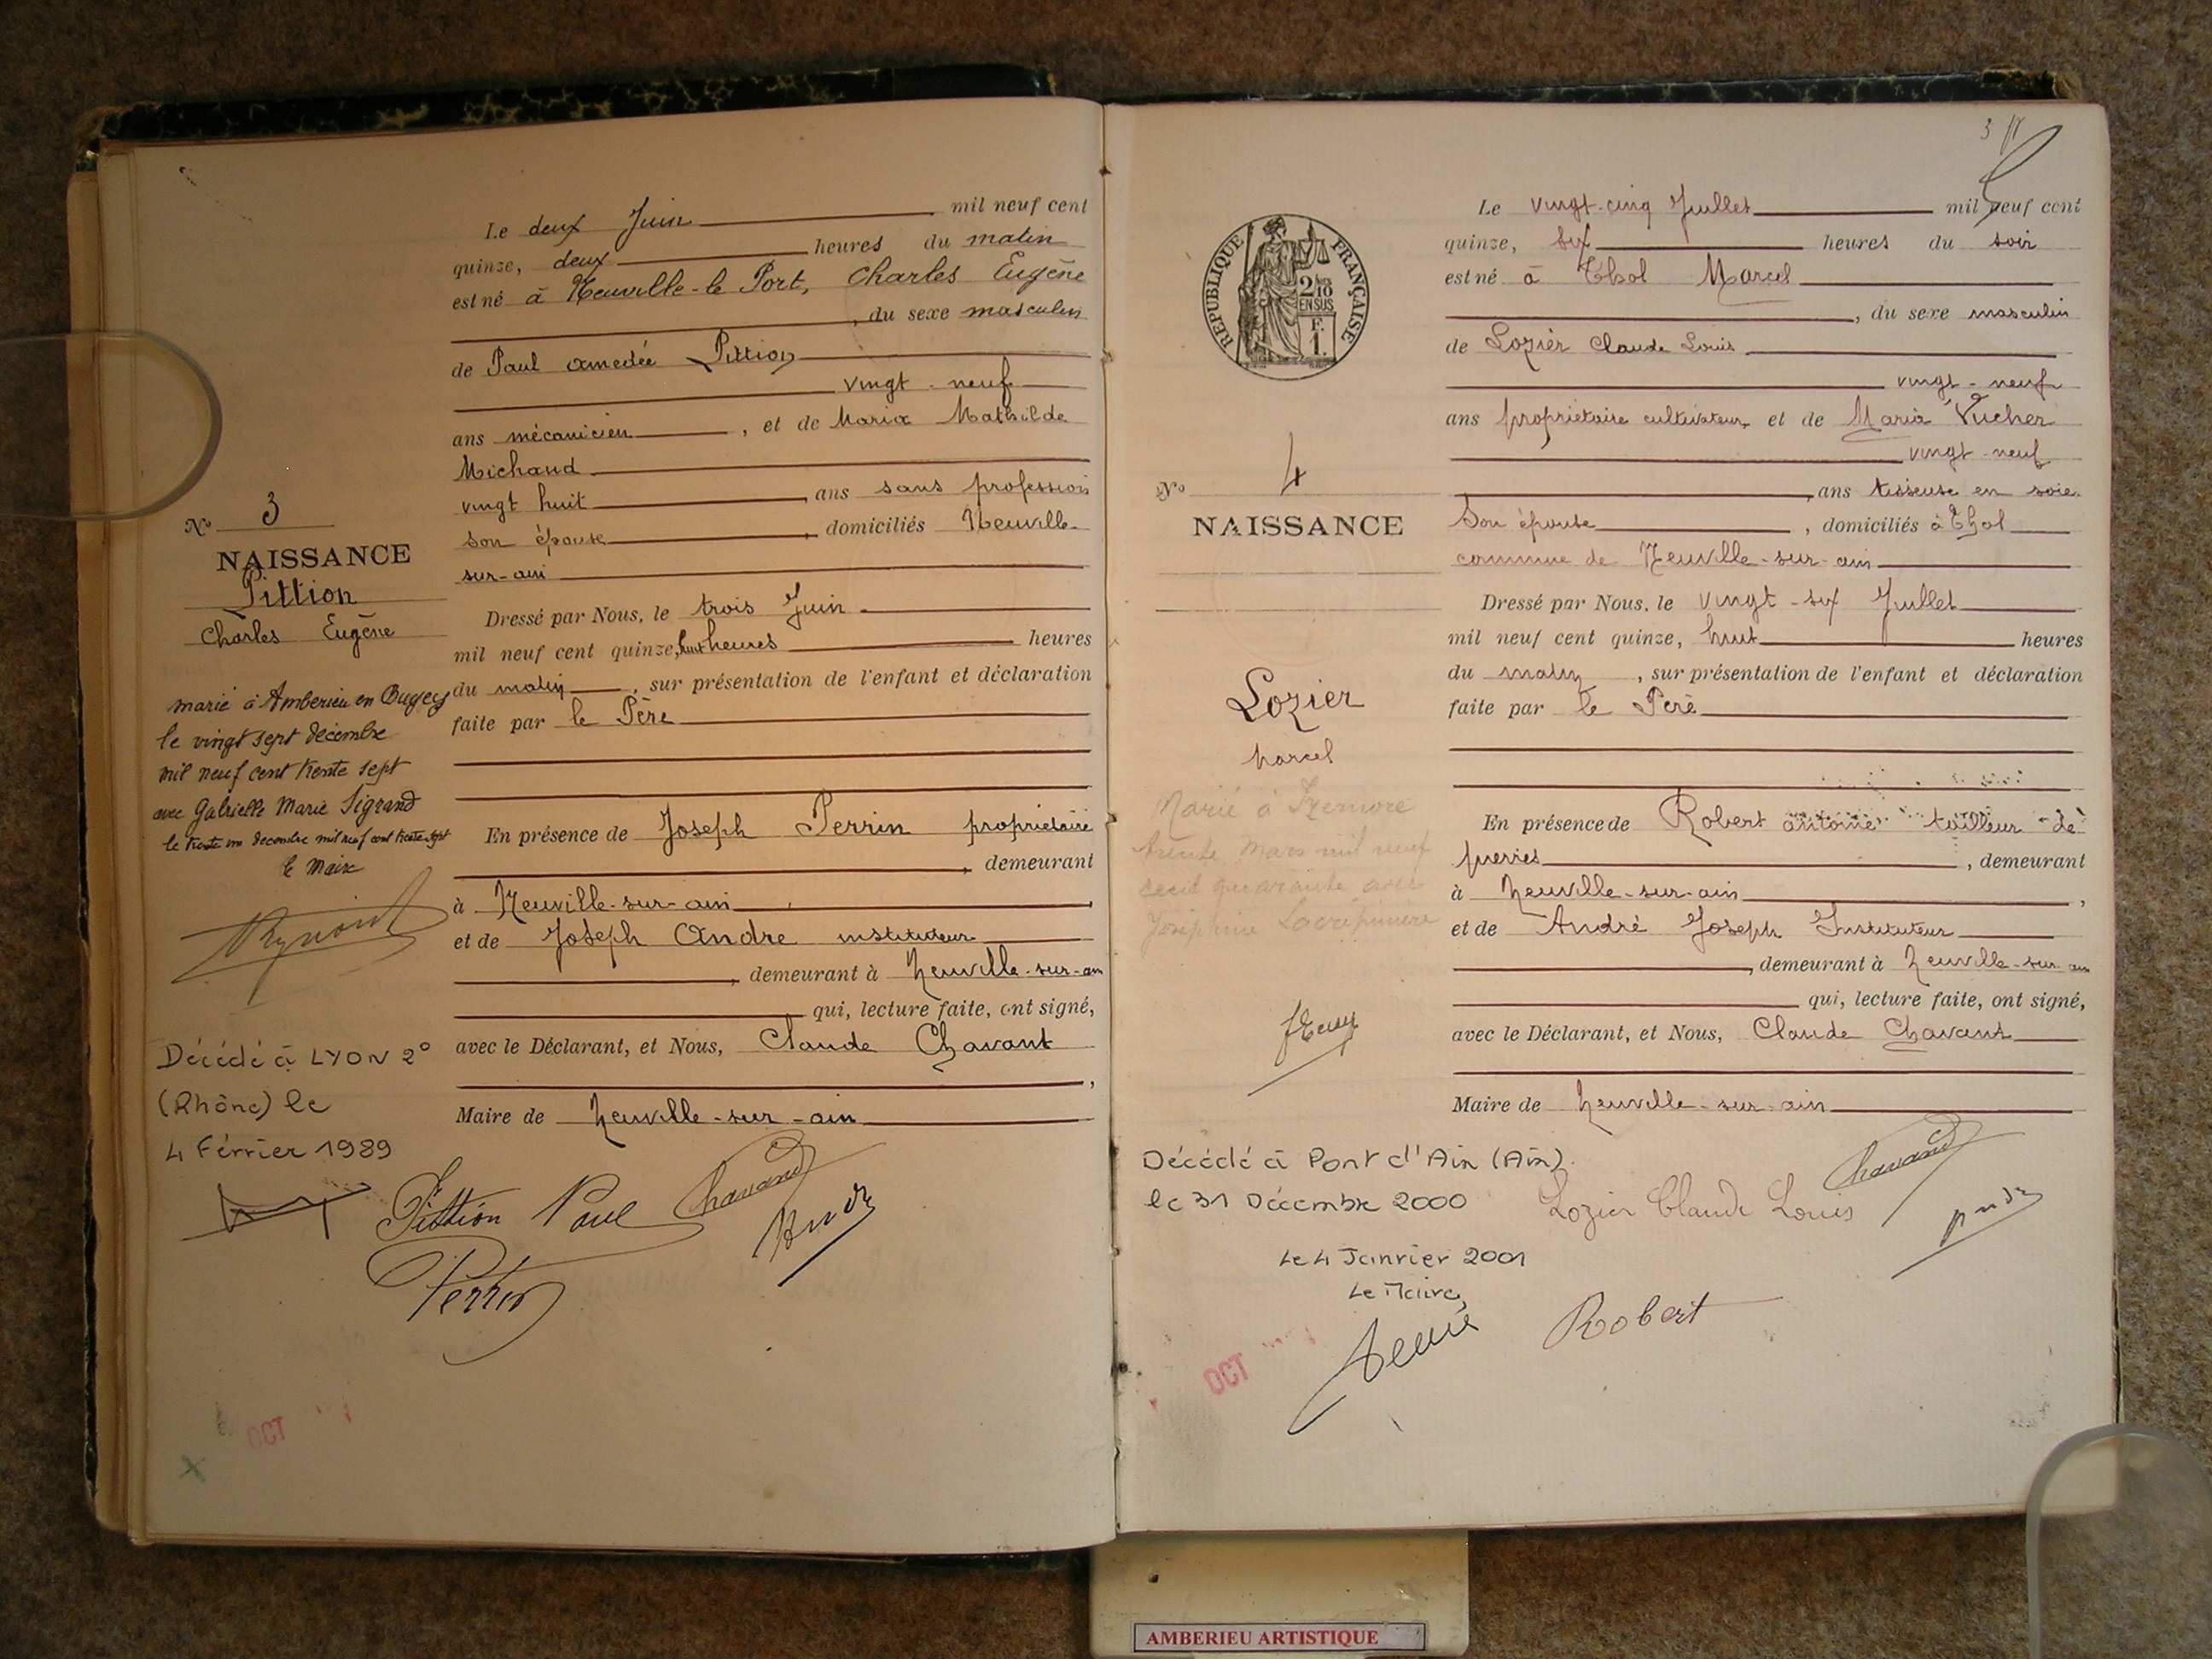 Le deux Juin mil neuf cent
quinze, deux heures du matin
est né à Neuville-le Port, Charles Eugène
, du sexe masculin
de Paul amedée Pittion
vingt-neuf
ans mécanicien, et de Maria Mathilde
Michaud
vingt huit, ans sans profession
son épouse, domiciliés Neuville-
sur-ain
Dressé par Nous, le trois Juin
mil neuf cent quinze, huit heures heures
du matin, sur présentation de l'enfant et déclaration
faite par le Père
En présence de Joseph Perrin propriétaire
, demeurant
à Neuville-sur-ain,
et de Joseph André instituteur
, demeurant à Neuville-sur-ain
qui, lecture faite, ont signé,
avec le Déclarant, et Nous, Claude Chavant
,
Maire de Neuville-sur-ain
Pittion Paul Chavant
André
Perrin
N° 3
NAISSANCE
Pittion
Charles Eugène
marié à Amberieu en Bugey
le vingt sept décembre
mil neuf cent trente sept
avec Gabrielle Marie Sigrand
le trente un décembre mil neuf cent trente sept
le Maire
Décédé à LYON 2°
(Rhône) le
4 Février 1989
OCT
3
Le vingt-cinq Juillet mil neuf cent
quinze, six heures du soir
est né à Thol Marcel
, du sexe masculin
de Lozier Claude Louis
vingt-neuf
ans propriétaire cultivateur et de Maria Vucher
vingt-neuf
, ans tisseuse en soie
Son épouse, domiciliés à Thol
commune de Neuville-sur-ain
Dressé par Nous, le vingt-six Juillet
mil neuf cent quinze, huit heures
du matin, sur présentation de l'enfant et déclaration
faite par le Père
En présence de Robert antoine tailleur de
pierres, demeurant
à Neuville-sur-ain,
et de André Joseph Instituteur
, demeurant à Neuville-sur-ain
qui, lecture faite, ont signé,
avec le Déclarant, et Nous, Claude Chavant
Maire de Neuville-sur-ain
Chavant
Lozier Claude Louis
André
Robert
REPUBLIQUE FRANÇAISE
2/10
EN SUS
F.
1.
N° 4
NAISSANCE
Lozier
Marcel
Marié à
trente Mars mil neuf
cent quarante avec
Joséphine
Décédé à Pont d'Ain (Ain)
le 31 Décembre 2000
Le 4 Janvier 2001
Le Maire,
OCT
AMBERIEU ARTISTIQUE